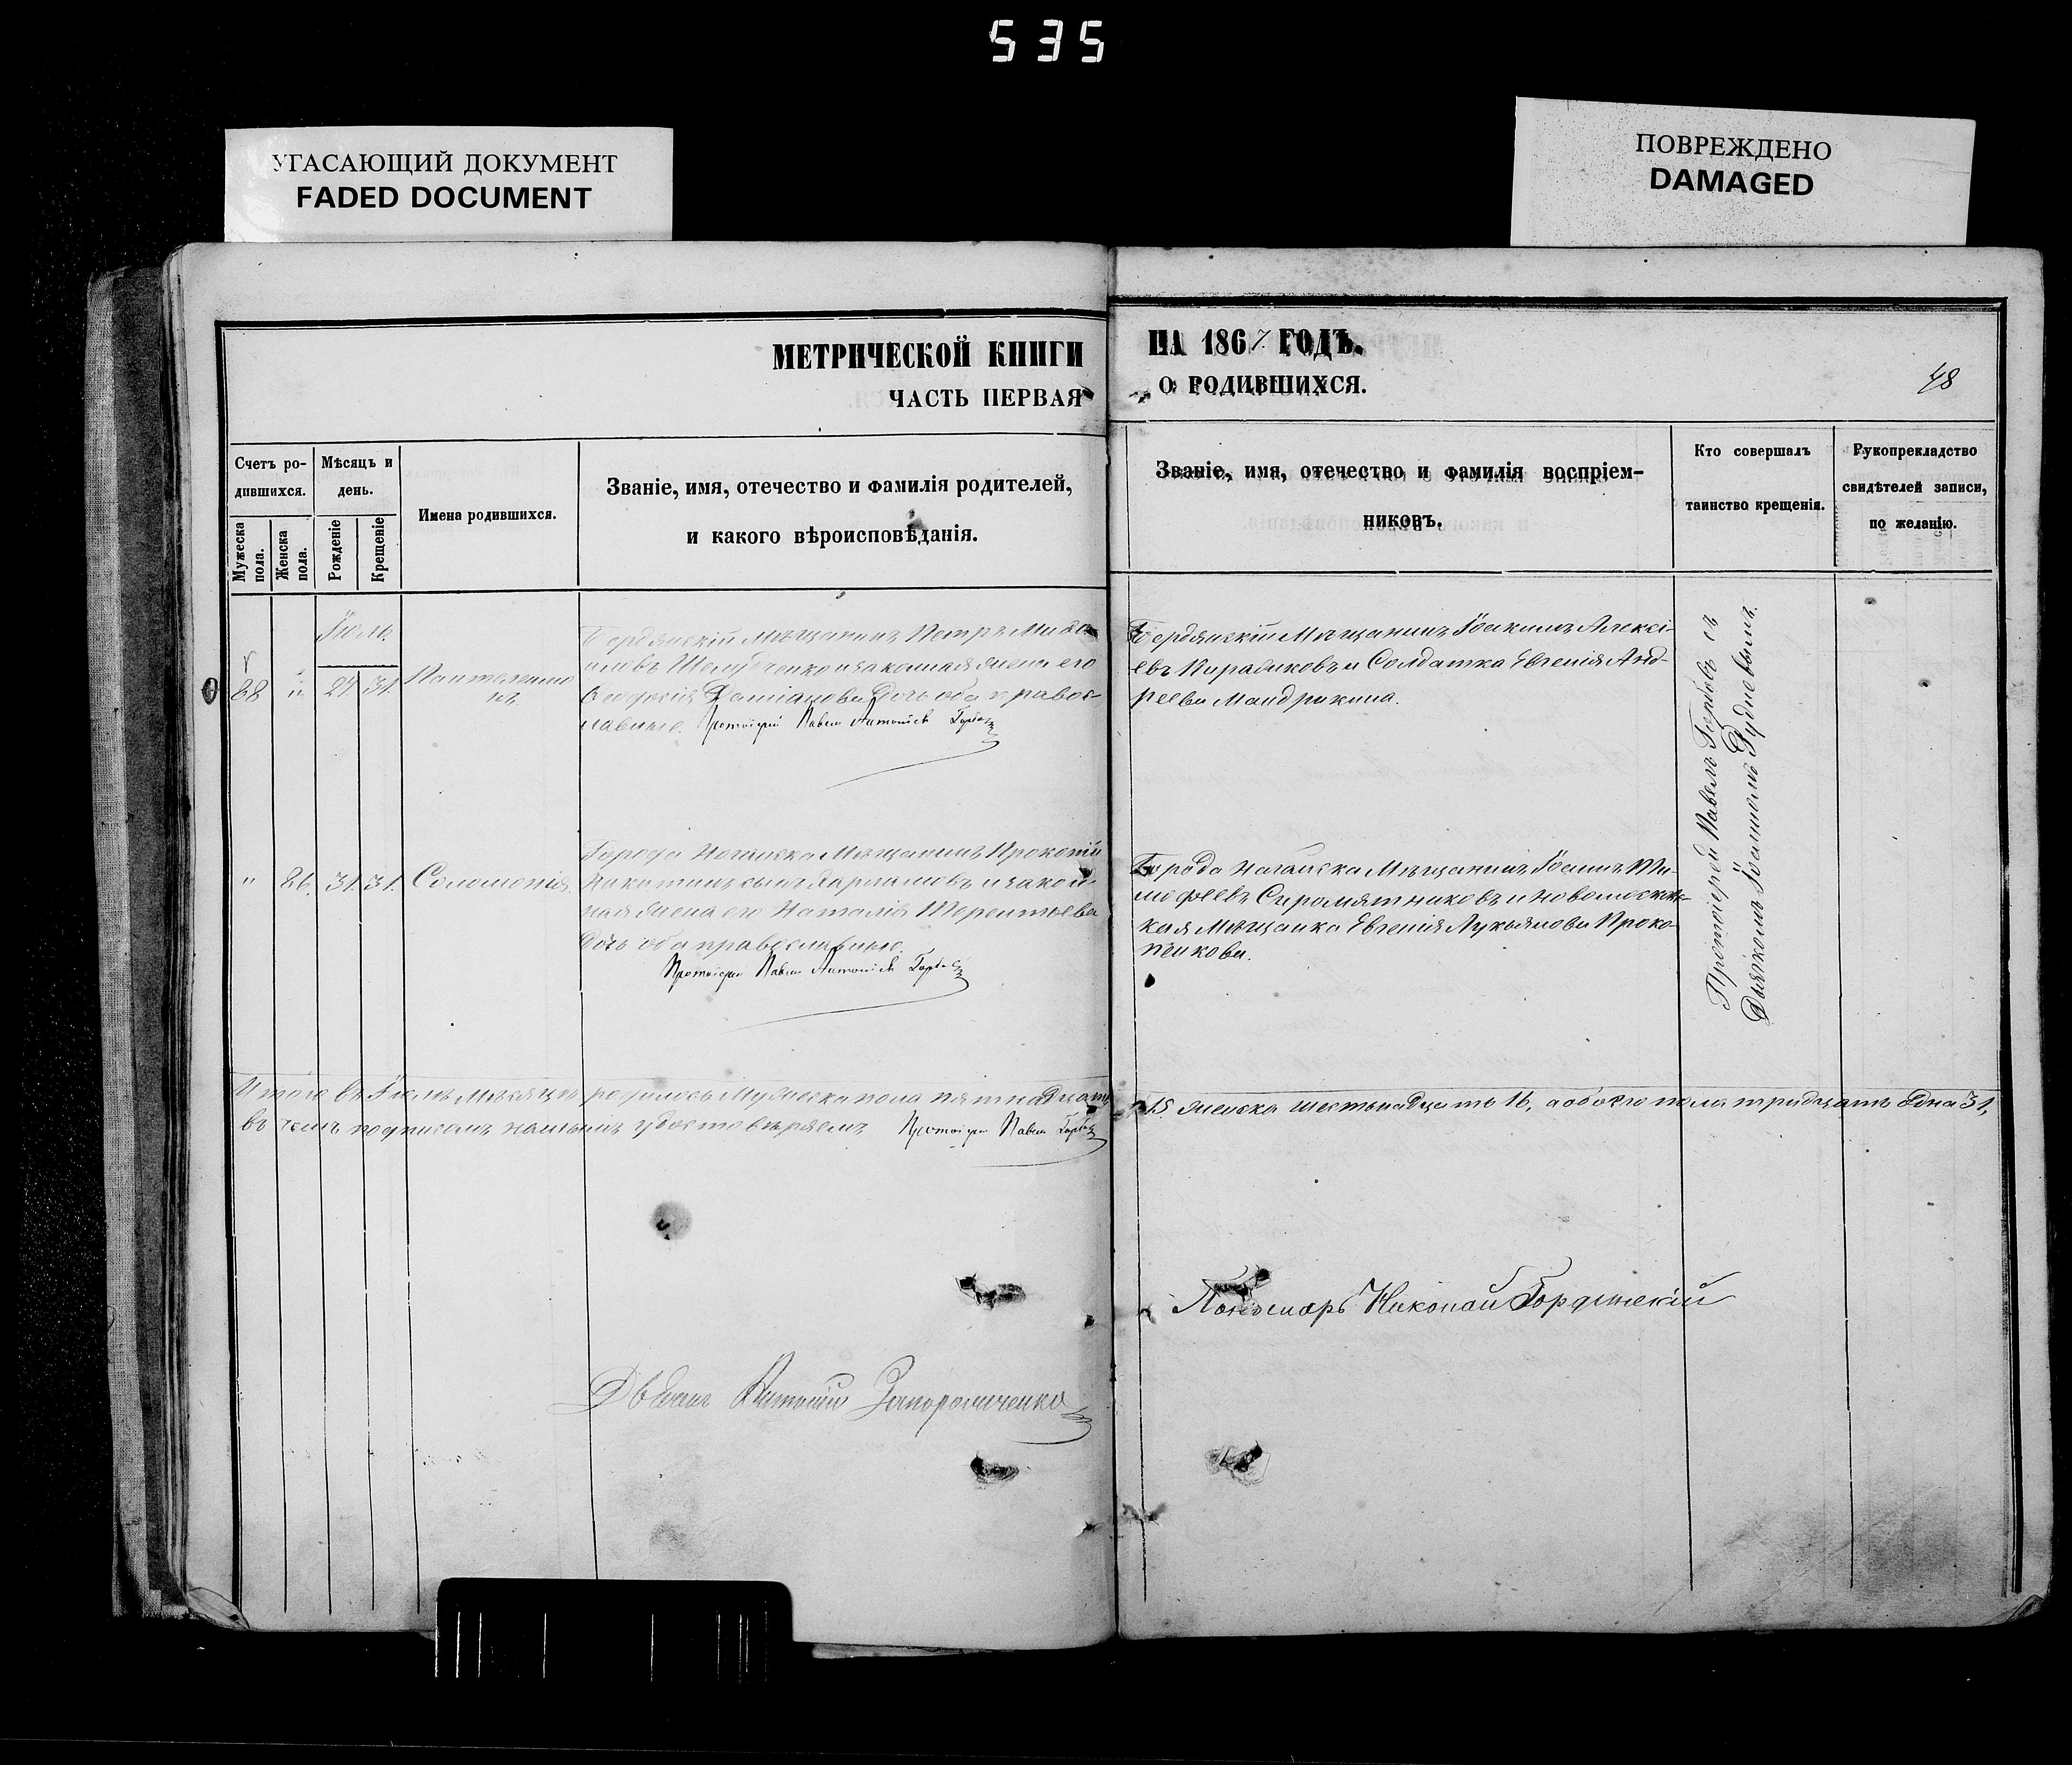 535
УГАСАЮЩИЙ ДОКУМЕНТ
FADED DOCUMENT
ПОВРЕЖДЕНО
DAMAGED
МЕТРИЧЕСКОЙ КНИГИ
ЧАСТЬ ПЕРВАЯ
НА 1867 ГОДЪ.
О РОДИВШИХСЯ.
48
Счетъ ро-
дившихся.
Мужеска
пола.
Женска
пола.
Мѣсяцъ и
день.
Рожденіе
Крещеніе
Имена родившихся.
Званіе, имя, отечество и фамилія родителей,
и какого вѣроисповѣданія.
Званіе, имя, отечество и фамилія воспріем-
никовъ.
Кто совершалъ
таинство крещенія.
Рукопрекладство
свидѣтелей записи,
по желанію.
Іюль.
28
27 31
Пантелеимо
нъ
Бердянскій Мѣщанинъ Петръ Михаи
ловъ и законная жена его
дочь оба правос-
лавные. Протоіерей Павелъ Антоніевъ
Бердянскій Мѣщанинъ Іоакимъ Алексі-
евъ и Солдатка Евгенія Анд-
реева Мандрикина.
" 26. 31. 31. Соломонія.
Города Ногайска Мѣщанинъ Прокопій
сынъ Варламовъ и закон-
ная жена его Наталія Терентьева
дочь оба православные.
Протоіерей Павелъ Антоніевъ
Города Ногайска Мѣщанинъ Іоаннъ Ти-
мофеевъ Сыромятниковъ и новомосков-
ская Мѣщанка Евгенія Лукьянова Проко-
пенкова.
Протоіерей Павелъ съ
Дьякомъ Іоанномъ Рудневымъ.
Итого въ Іюлѣ Мѣсяцѣ родилось Мужеска пола пятнадцать
15 женска шестьнадцать 16, а обоего пола тридцать одна 31,
въ чемъ подписомъ нашимъ удостовѣряемъ Протоіерей Павелъ
Пономарь Николай Гордынскій
Антоній Запорожченко